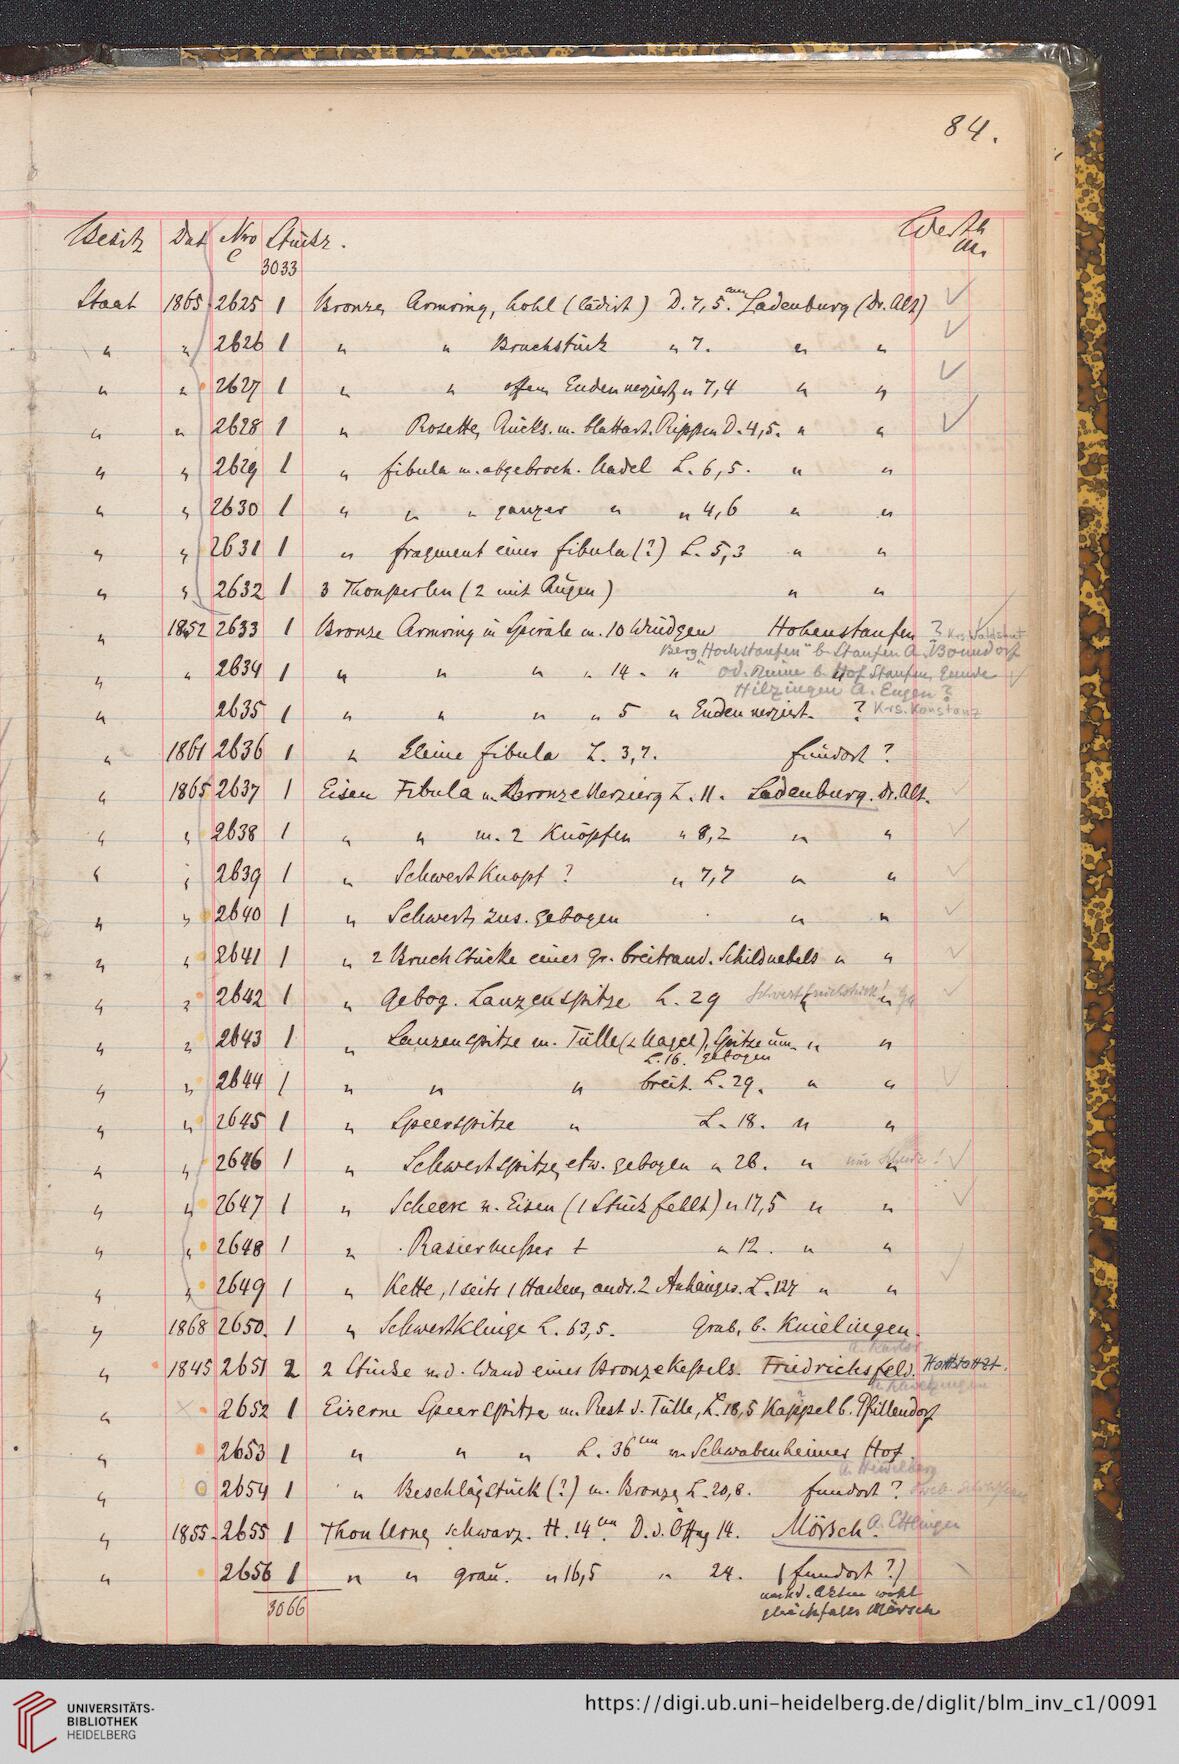 84.
Besitz Dat Nro Stückz. Werth
C M.
3033
Staat 1865 2625 1 Bronze, Armring, hohl (lädirt) D. 7,5. cm Ladenburg (Dr. Alt)
" " 2626 1 " " Bruchstück " 7. " "
" " 2627 1 " " offen, Enden verziert, " 7,4 " "
" " 2628 1 " Rosette, Rücks. m. blattart. Rippen D. 4,5. " "
" " 2629 1 " Fibula m. abgebroch. Nadel L. 6,5. " "
" " 2630 1 " " " ganzer " " 4,6 " "
" " 2631 1 " Fragment einer Fibula (?) L. 5,3 " "
" " 2632 1 3 Thonperlen (2 mit Augen) " "
" 1852 2633 1 Bronze Armring in Spirale m. 10 Windgen Hohenstaufen ? Krs. Waldshut
Berg "Hochstaufen" b. Staufen A. Bonndorf
" " 2634 1 " " " " 14. " " od. Ruine b. Hof Staufen, Gemde
Hilzingen A. Engen ?
" 2635 1 " " " " 5 " Enden verziert. ? Krs. Konstanz
" 1861 2636 1 " Kleine Fibula L. 3,7. Fundort ?
" 1865 2637 1 Eisen Fibula m. Bronze Verzierg L. 11. Ladenburg. Dr. Alt.
" " 2638 1 " " m. 2 Knöpfen " 8,2 " "
" " 2639 1 " Schwert Knopf ? " 7,7 " "
" " 2640 1 " Schwert, zus. gebogen " "
" " 2641 1 " 2 Bruch Stücke eines gr. breitrand. Schildnabels " "
" " 2642 1 " Gebog. Lanzenspitze L. 29 " "
" " 2643 1 " Lanzenspitze m. Tülle (2 Nägel), Spitze um- " "
L. 16. gebogen
" " 2644 1 " " " breit. L. 29. " "
" " 2645 1 " Speerspitze " L. 18. " "
" " 2646 1 " Schwertspitze, etw. gebogen " 26. " "
" " 2647 1 " Scheere v. Eisen (1 Stück fehlt) " 17,5 " "
" " 2648 1 " Rasiermesser " 12. " "
" " 2649 1 " Kette, 1 seits 1 Haken, andr. 2 Anhänger. L. 127 " "
" 1868 2650. 1 " Schwertklinge L. 63,5. Grab, b. Knielingen.
" 1845 2651 2 2 Stücke v. d. Wand eines Bronze Kessels. Friedrichsfeld.
A. Schwetzingen
" 2652 1 Eiserne Speerspitze m. Rest d. Tülle, L. 18,5 Kappel b. Pfullendorf
" 2653 1 " " " L. 36 cm v. Schwabenheimer Hof.
A. Heidelberg
" 2654 1 " Beschlägstück (?) m. Bronze, L. 20,8. Fundort ?
" 1855 2655 1 Thon Urne, schwarz. H. 14 cm D. d. Öffng 14. Mörsch. A. Ettlingen
" 2656 1 " " grau. " 16,5 " 24. (Fundort ?)
nach d. Akten wohl
3066 gleichfalls Mörsch
UNIVERSITÄTS-
BIBLIOTHEK
HEIDELBERG
https://digi.ub.uni-heidelberg.de/diglit/blm_inv_c1/0091